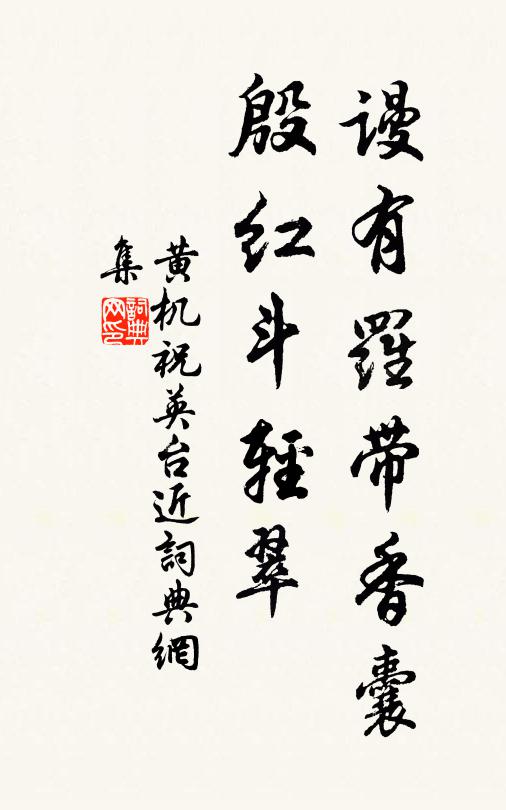 谩有羅帶香囊
殷红斗輕翠
黄机祝英台近詞典網
集
詞典
网印